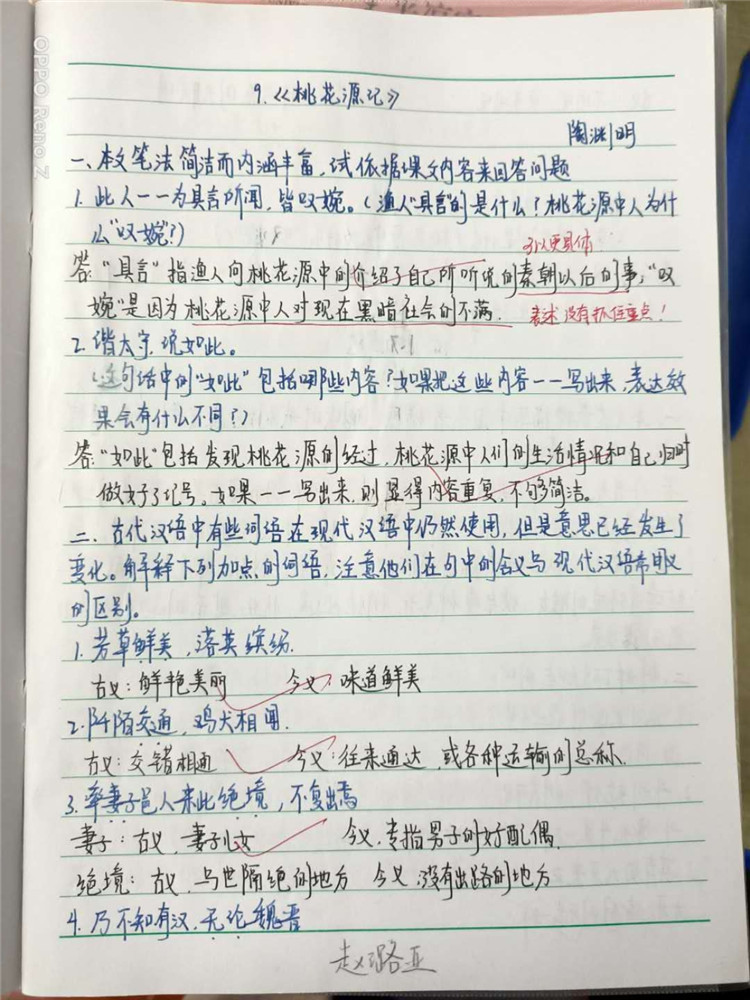 9.《桃花源记》
陶渊明
一、本文笔法简洁而内涵丰富,试依据课文内容来回答问题
1. 此人一一为具言所闻,皆叹婉。(渔人"具言"的是什么?桃花源中人为什
么"叹婉"?)
可以更具体
答:"具言"指渔人向桃花源中的介绍了自己所听说的秦朝以后的事;"叹
婉"是因为桃花源中人对现在黑暗社会的不满.
表述没有抓住重点!
2. 诣太守,说如此。
(这句话中的"如此"包括哪些内容?如果把这些内容一一写出来,表达效
果会有什么不同?)
答:"如此"包括发现桃花源的经过,桃花源中人们的生活情况和自己归时
做好了记号。如果一一写出来,则显得内容重复,不够简洁。
二、古代汉语中有些词语在现代汉语中仍然使用,但是意思已经发生了
变化。解释下列加点的词语,注意他们在句中的含义与现代汉语常用义
的区别。
1. 芳草鲜美,落英缤纷.
古义:鲜艳美丽 今义:味道鲜美
2. 阡陌交通,鸡犬相闻.
古义:交错相通 今义:往来通达 或各种运输的总称.
3. 率妻子邑人来此绝境,不复出焉
妻子:古义,妻子儿女 今义,专指男子的好配偶.
绝境:古义,与世隔绝的地方 今义:没有出路的地方
4. 乃不知有汉,无论魏晋
赵璐亚
OPPO Reno Z